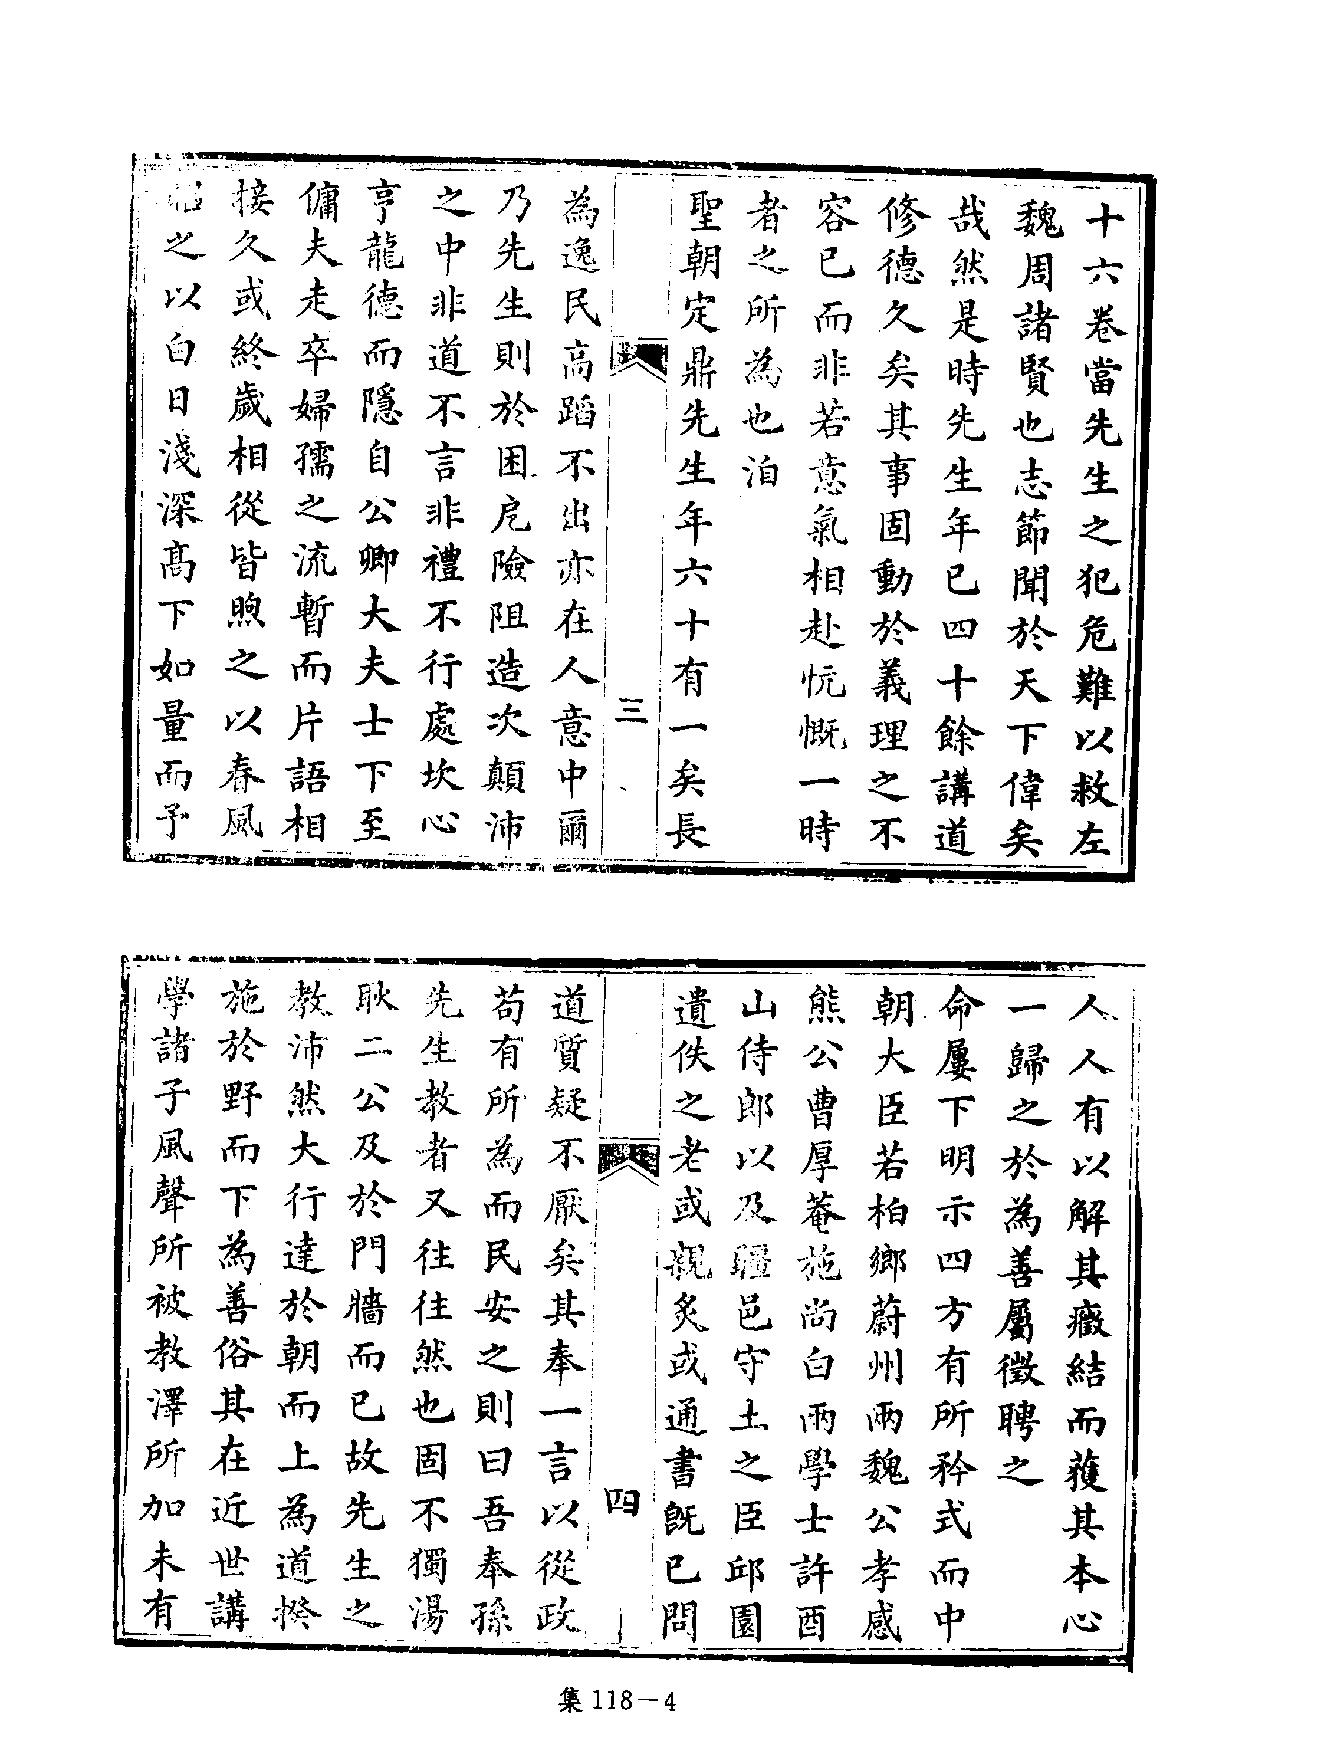 十六卷當先生之犯危難以救左
魏周諸賢也志節聞於天下偉矣
哉然是時先生年已四十餘講道
修德久矣其事固動於義理之不
容已而非若意氣相赴忼慨一時
者之所為也洎
聖朝定鼎先生年六十有一矣長
三
為逸民高蹈不出亦在人意中爾
乃先生則於困戹險阻造次顛沛
之中非道不言非禮不行處坎心
亨龍德而隱自公卿大夫士下至
傭夫走卒婦孺之流暫而片語相
接久或終歲相從皆煦之以春風
之以白日淺深高下如量而予
人人有以解其癥結而獲其本心
一歸之於為善屬徵聘之
命屢下明示四方有所矜式而中
朝大臣若柏鄉蔚州兩魏公孝感
熊公曹厚菴施尚白兩學士許酉
山侍郎以及疆邑守土之臣邱園
遺佚之老或親炙或通書旣已問
四
道質疑不厭矣其奉一言以從政
苟有所為而民安之則曰吾奉孫
先生教者又往往然也固不獨湯
耿二公及於門牆而已故先生之
教沛然大行達於朝而上為道揆
施於野而下為善俗其在近世講
學諸子風聲所被教澤所加未有
集118－4